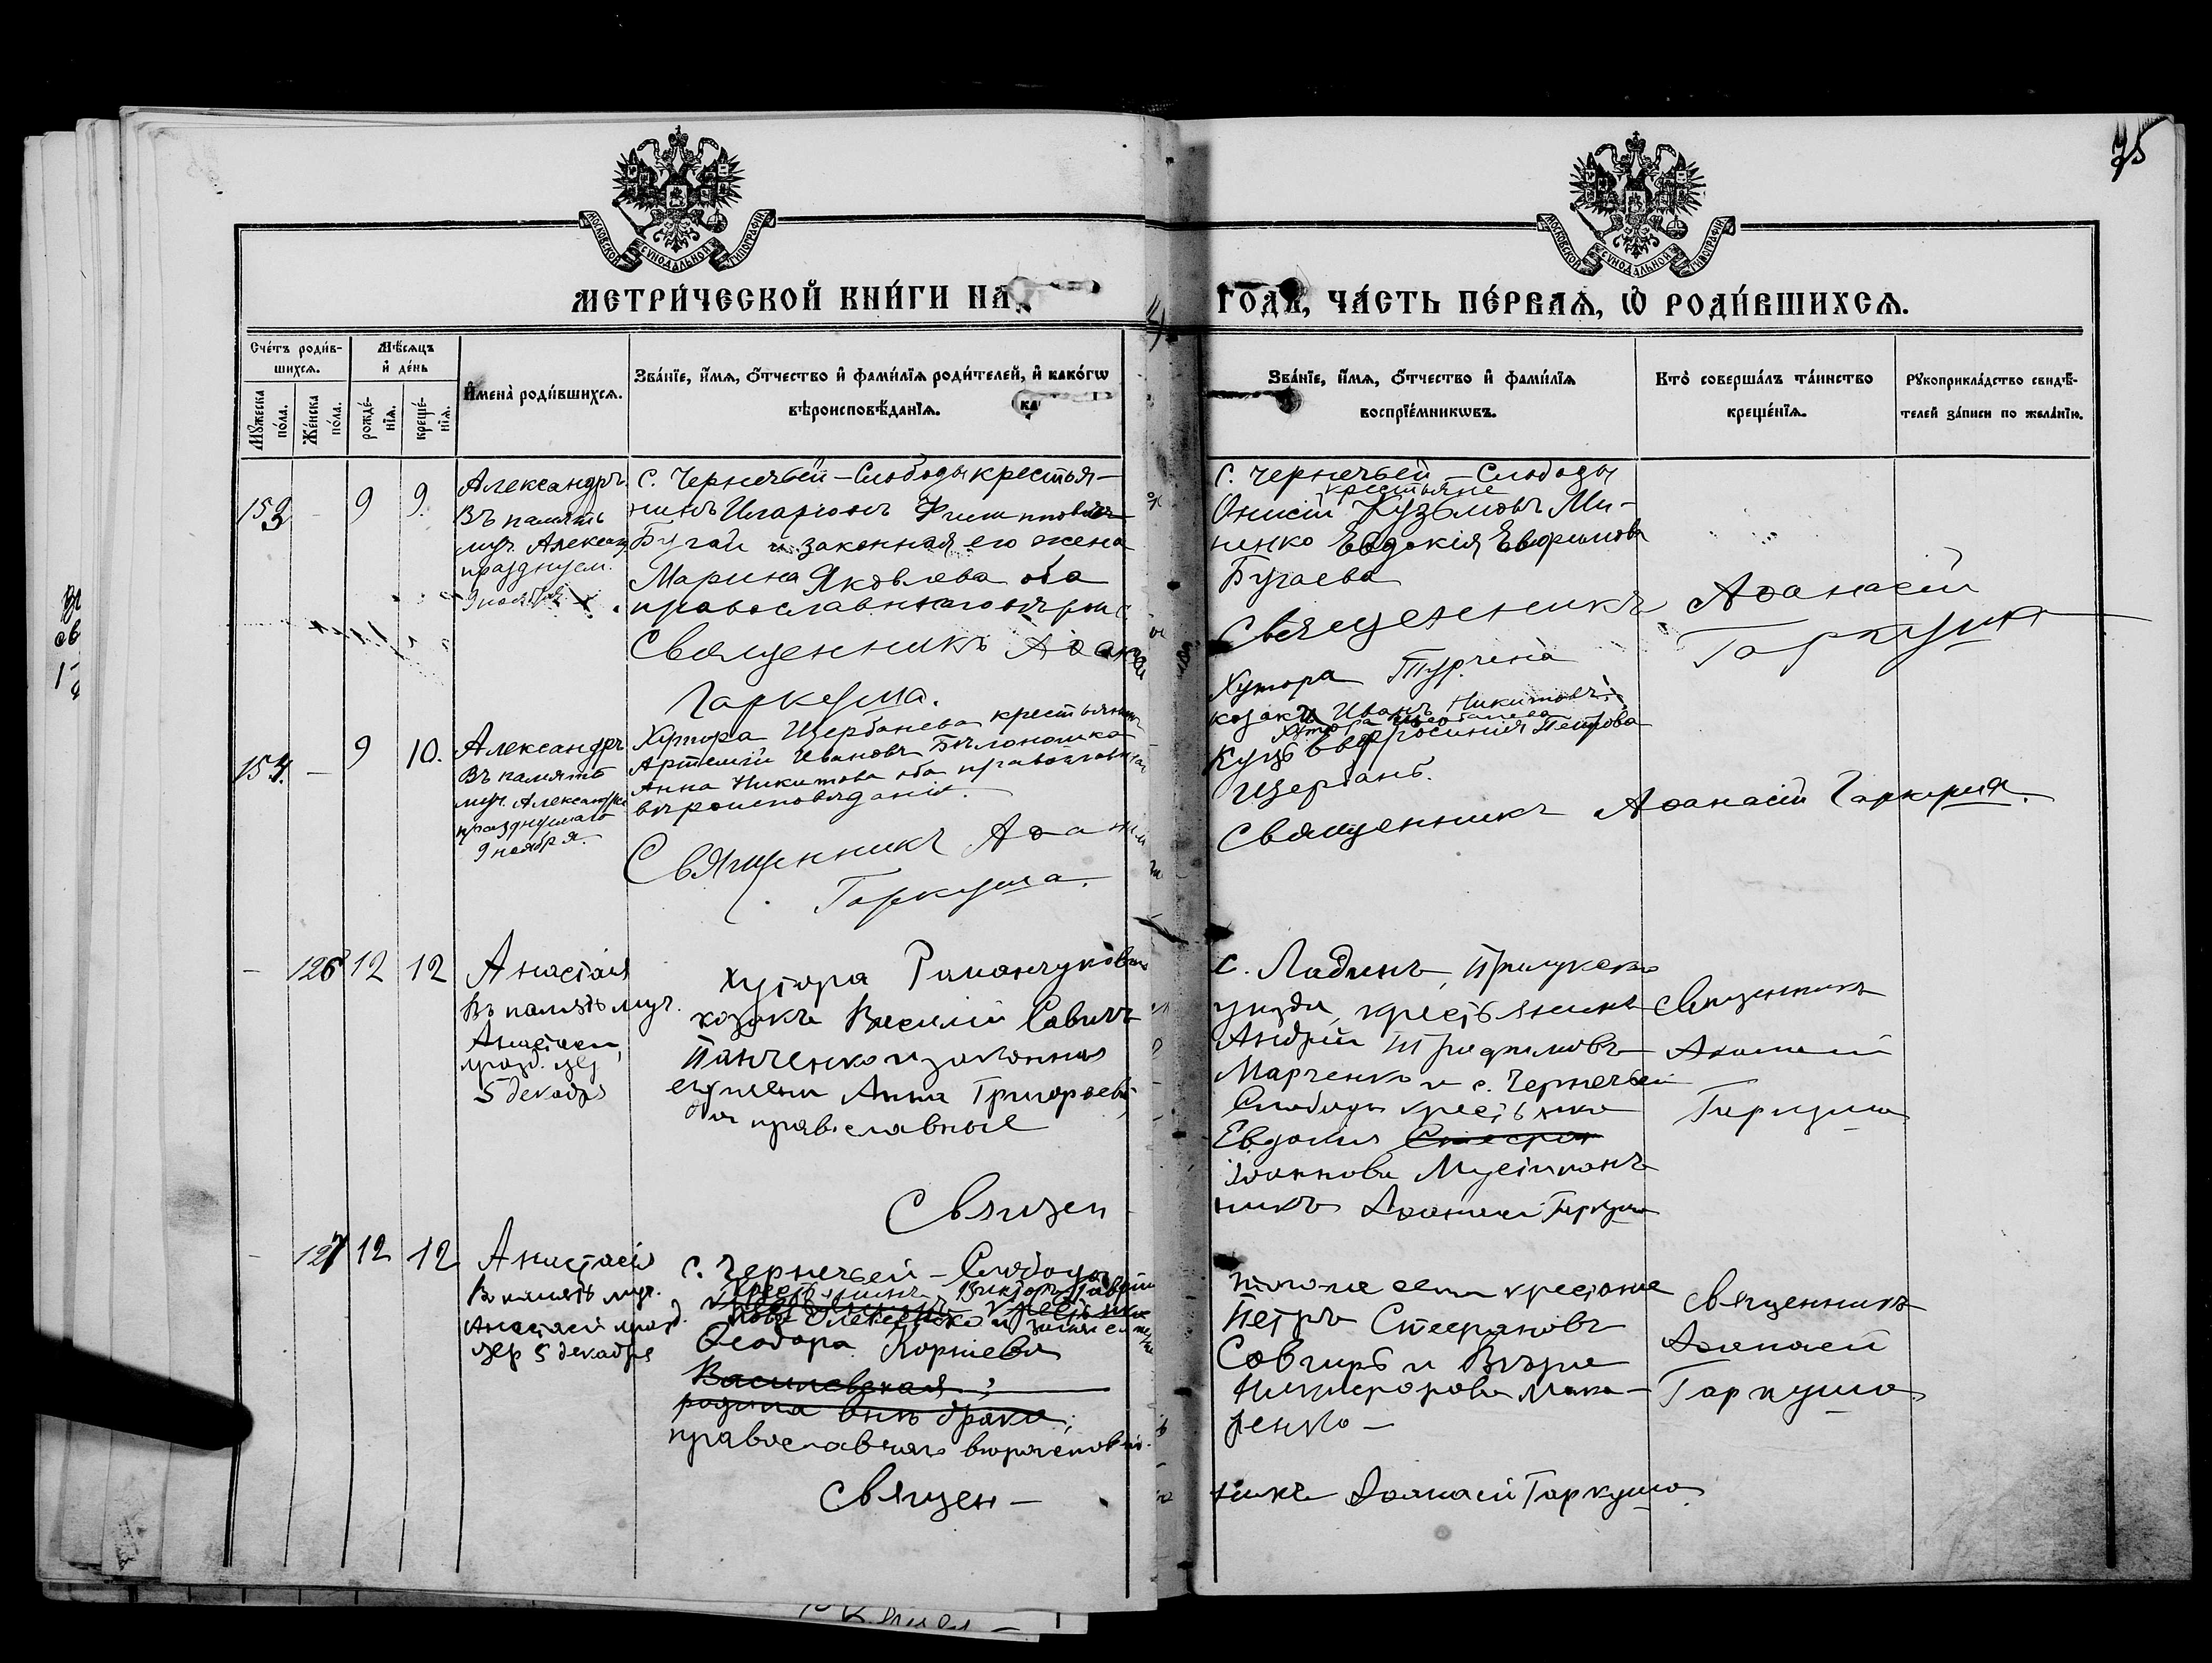 75
МОСКОВСКОЙ СУНОДАЛЬНОЙ ТИПОГРАФІИ
МОСКОВСКОЙ СУНОДАЛЬНОЙ ТИПОГРАФІИ
МЕТРИ́ЧЕСКОЙ КНИ́ГИ НА
ГОДЪ, ЧА́СТЬ ПЕ́РВАѦ, Ѡ РОДИ́ВШИХСѦ.
Сче́тъ роди́в-
шихсѧ.
Мꙋ́жеска
по́ла.
Же́нска
по́ла.
Мѣ́сѧцъ
и҆ де́нь
рожде́-
нїѧ.
креще́-
нїѧ.
И҆мена̀ роди́вшихсѧ.
Зва́нїе, и҆́мѧ, ѻ҆́тчество и҆ фами́лїѧ роди́телей, и҆ како́гѡ
вѣроисповѣ́данїѧ.
Зва́нїе, и҆́мѧ, ѻ҆́тчество и҆ фами́лїѧ
воспрїе́мникѡвъ.
Кто̀ соверша́лъ та́инство
креще́нїѧ.
Рꙋкоприкла́дство свидѣ́-
телей за́писи по жела́нїю.
153 - 9 9.
Александръ.
Въ память
муч. Александ
празднуем.
9 ноября
С. Чернечьей - Слободы крестья-
нинъ Иларіонъ Филипповъ
Бугай и законная его жена
Марина Яковлева оба
православнаго
Священникъ Аѳанасій
Гаркуша.
С. Чернечьей - Слободы
крестьяне
Онисій Кузьмовъ Ми-
ненко Евдокія Евфимова
Бугаева
Священникъ Аѳанасій
Гаркуша
154. - 9 10.
Александръ
Въ память
муч. Александра
празднуемаго
9 ноября.
Хутора Щербанева крестьянинъ
Артемій Ивановъ Билоножка
Анна Никитова оба православнаго
вѣроисповѣданія.
Священникъ Аѳанасій
Гаркуша.
Хутора Турчина
козакъ Иванъ Никитовъ
Хутора Щербанева
Куцъ Евфросинія Петрова
Щербань.
Священникъ Аѳанасій Гаркуша.
- 126 12 12
Анастасія
Въ память муч.
Анастасіи,
празд. цер
5 декабря
Хутора Романчукова
козакъ Василій Савичъ
Панченко и законная
его жена Анна Григорьева,
оба православные
Священ-
с. Ладинъ, Прилукскаго
уѣзда, крестьянинъ
Андрій Трофимовъ
Марченко и с. Чернечьей
Слободы крестьянка
Евдокія
Іоаннова
никъ Аѳанасій Гаркуша
Священникъ
Аѳанасій
Гаркуша
- 127 12 12
Анастасія
Въ память муч.
Анастасіи празд.
цер 5 декабря
С. Чернечьей - Слободы
крестьянинъ Викторъ
Ѳеодора
Василевская;
родила внѣ брака;
православнаго вѣроисповѣд.
Священ-
того же села крестьяне
Петръ Стефановъ
и Вѣра
Никифорова Мака-
ренко -
никъ Аѳанасій Гаркуша
Священникъ
Аѳанасій
Гаркуша